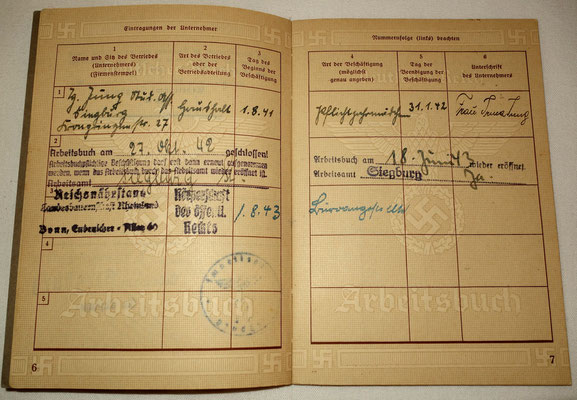 Eintragungen der Unternehmer
1
Name und Sitz des Betriebes
(Unternehmers)
(Firmenstempel)
2
Art des Betriebes
oder der
Betriebsabteilung
3
Tag des
Beginns der
Beschäftigung
1
Jung
Siegburg
27
Haushalt
1.8.41
2
Arbeitsbuch am 27. Okt. 42 geschlossen!
Arbeitsbuchpflichtige Beschäftigung darf erst dann erneut aufgenommen
werden, wenn das Arbeitsbuch durch das Arbeitsamt wieder eröffnet ist.
Arbeitsamt
Reichsnährstand
Landesbauernschaft Rheinland
Bonn, Endenicher Allee 60
Körperschaft
des öff.
Rechts
1.8.43
4
5
Arbeitsbuch
6
Nummernfolge (links) beachten
4
Art der Beschäftigung
(möglichst
genau angeben)
5
Tag der
Beendigung der
Beschäftigung
6
Unterschrift
des Unternehmers
Pflichtjahrmädchen
31.3.42
Frau Jung
Arbeitsbuch am 18. Juni 43 wieder eröffnet.
Arbeitsamt Siegburg
Büroangestellte
Arbeitsbuch
7